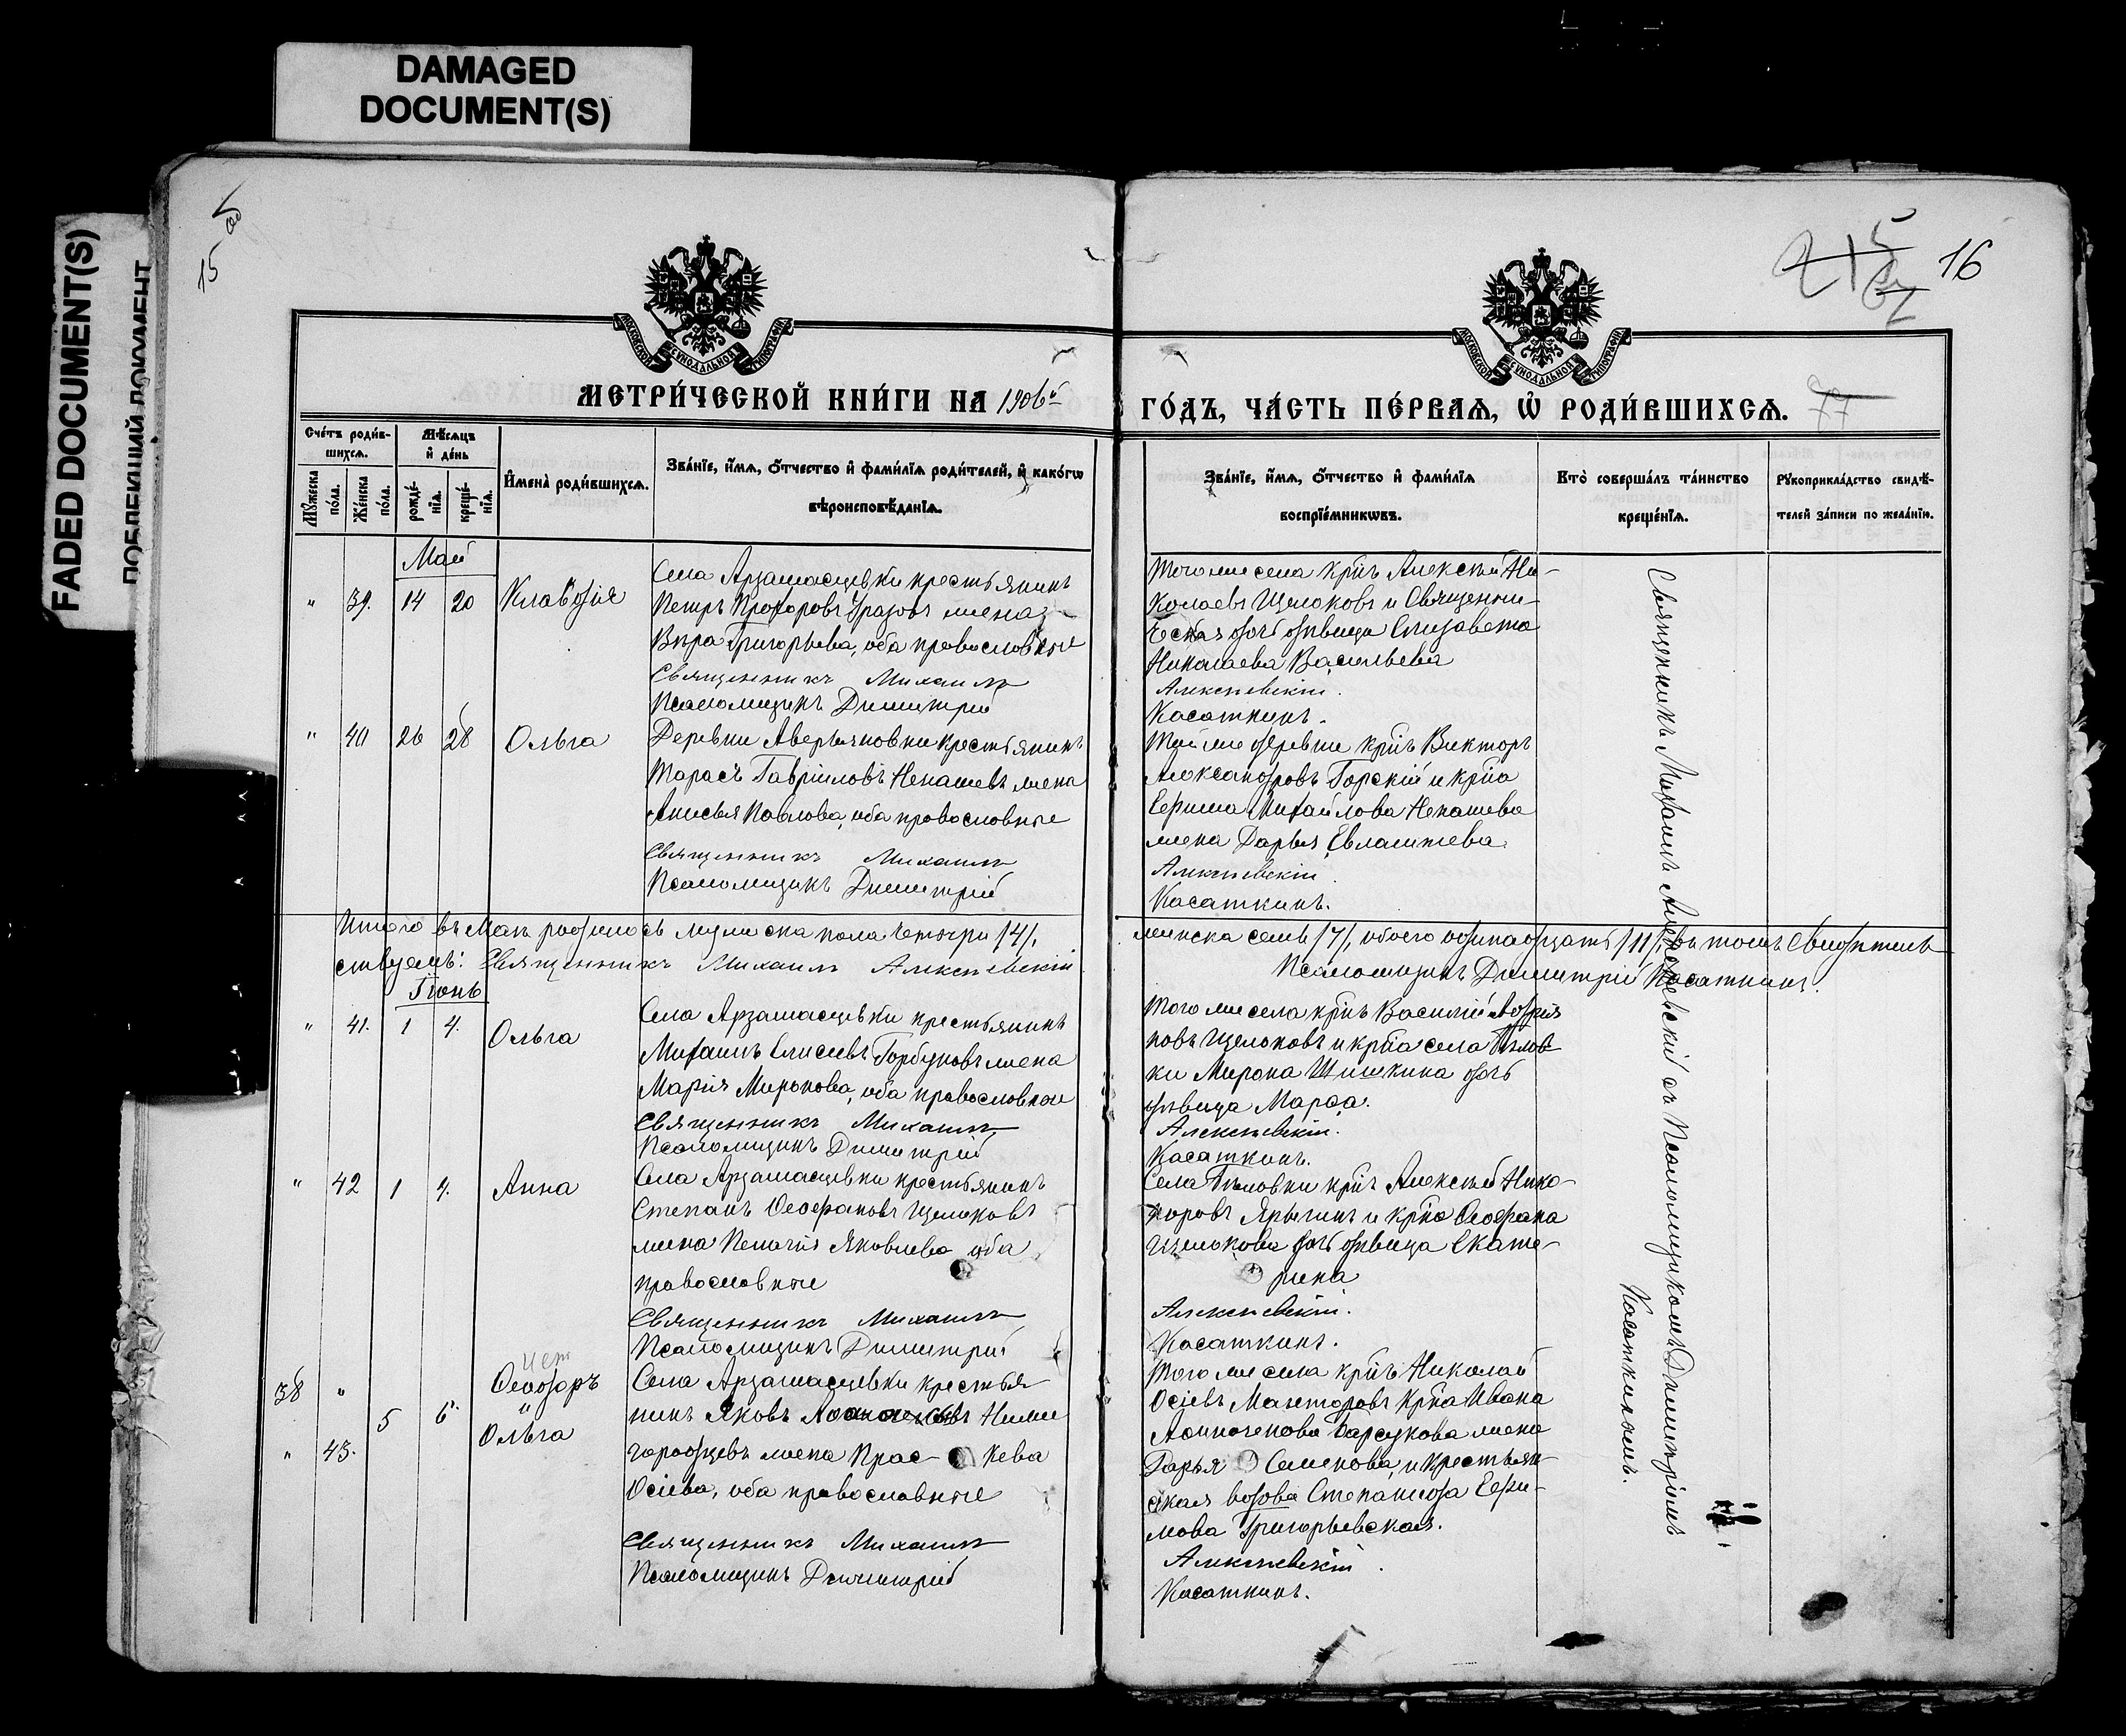 DAMAGED
DOCUMENT(S)
FADED DOCUMENT(S)
15
16
77
МОСКОВСКОЙ СѴНОДАЛЬНОЙ ТИПОГРАФІИ
МОСКОВСКОЙ СѴНОДАЛЬНОЙ ТИПОГРАФІИ
МЕТРИ́ЧЕСКОЙ КНИ́ГИ НА 1906й
ГО́ДЪ, ЧА́СТЬ ПЕ́РВАѦ, Ѽ РОДИ́ВШИХСѦ.
Сче́тъ роди́в-
шихсѧ.
Мꙋ́жеска
по́ла.
Же́нска
по́ла.
Мѣ́сѧцъ
и҆ де́нь
рожде́-
нїѧ.
креще́-
нїѧ.
И҆мена̀ роди́вшихсѧ.
Зва́нїе, и҆́мѧ, ѻ҆́тчество и҆ фами́лїѧ роди́телей, и҆ како́гѡ
вѣроисповѣ́данїѧ.
Зва́нїе, и҆́мѧ, ѻ҆́тчество и҆ фами́лїѧ
воспрїе́мникѡвъ.
Кто̀ соверша́лъ та́инство
креще́нїѧ.
Рꙋкоприкла́дство свидѣ́-
телей за́писи по жела́нїю.
Май
" 39. 14 20 Клавдія
Села Арзамасцевки крестьянинъ
Петръ Прохоровъ Уразовъ жена
Вѣра Григорьева, оба православные
Священникъ Михаилъ
Псаломщикъ Димитрій
Того же села крнъ Алексѣй Ни-
колаевъ Щелоковъ и Священни-
ческая дочь дѣвица Елизавета
Николаева Васильева
Алексѣевскій.
Касаткинъ.
" 40 26 28 Ольга
Деревни Аверьяновки крестьянинъ
Тарасъ Гавріиловъ Ненашевъ жена
Анисья Павлова, оба православные
Священникъ Михаилъ
Псаломщикъ Димитрій
Той же деревни крнъ Викторъ
Александровъ Горскій и крна
Михайлова Ненашева
жена Дарья
Алексѣевскій.
Касаткинъ.
Итого въ Маѣ родилось мужеска пола четыри /4/,
женска семь /7/, обоего одинадцать /11/, въ томъ свидѣтель
ствуемъ: Священникъ Михаилъ Алексѣевскій
Псаломщикъ Димитрій Касаткинъ.
Іюнь
" 41. 1 4. Ольга
Села Арзамасцевки крестьянинъ
Михаилъ Елисеевъ Горбуновъ жена
Марія Миронова, оба православные
Священникъ Михаилъ
Псаломщикъ Димитрій
Того же села крнъ Василій Андрія
новъ Щелоковъ и крна села
ки Мирона Шишкина дочь
дѣвица Марѳа.
Алексѣевскій.
Касаткинъ.
" 42 1 4. Анна
Села Арзамасцевки крестьянинъ
Степанъ Ѳеофановъ Щелоковъ
жена Пелагія Яковлева оба
православные
Священникъ Михаилъ
Псаломщикъ Димитрій
Села крнъ Алексѣй Ника-
норовъ Ярыгинъ и крна Ѳеофана
Щелокова дочь дѣвица Екате-
рина
Алексѣевскій.
Касаткинъ.
38 " Ѳеодоръ
5 6. "
" 43. Ольга
Села Арзамасцевки крестья
нинъ Яковъ Ниже
городцевъ жена Прас- кева
Осіева, оба православные
Священникъ Михаилъ
Псаломщикъ Димитрій
Того же села крнъ Николай
Осіевъ Мажоровъ крна Ивана
Барсукова жена
Дарья Семенова, и крестьян-
ская вдова Степанида Ефи-
мова Григорьевская.
Алексѣевскій.
Касаткинъ.
Священникъ Михаилъ Алексѣевскій съ Псаломщикомъ Димитріемъ
Касаткинымъ.